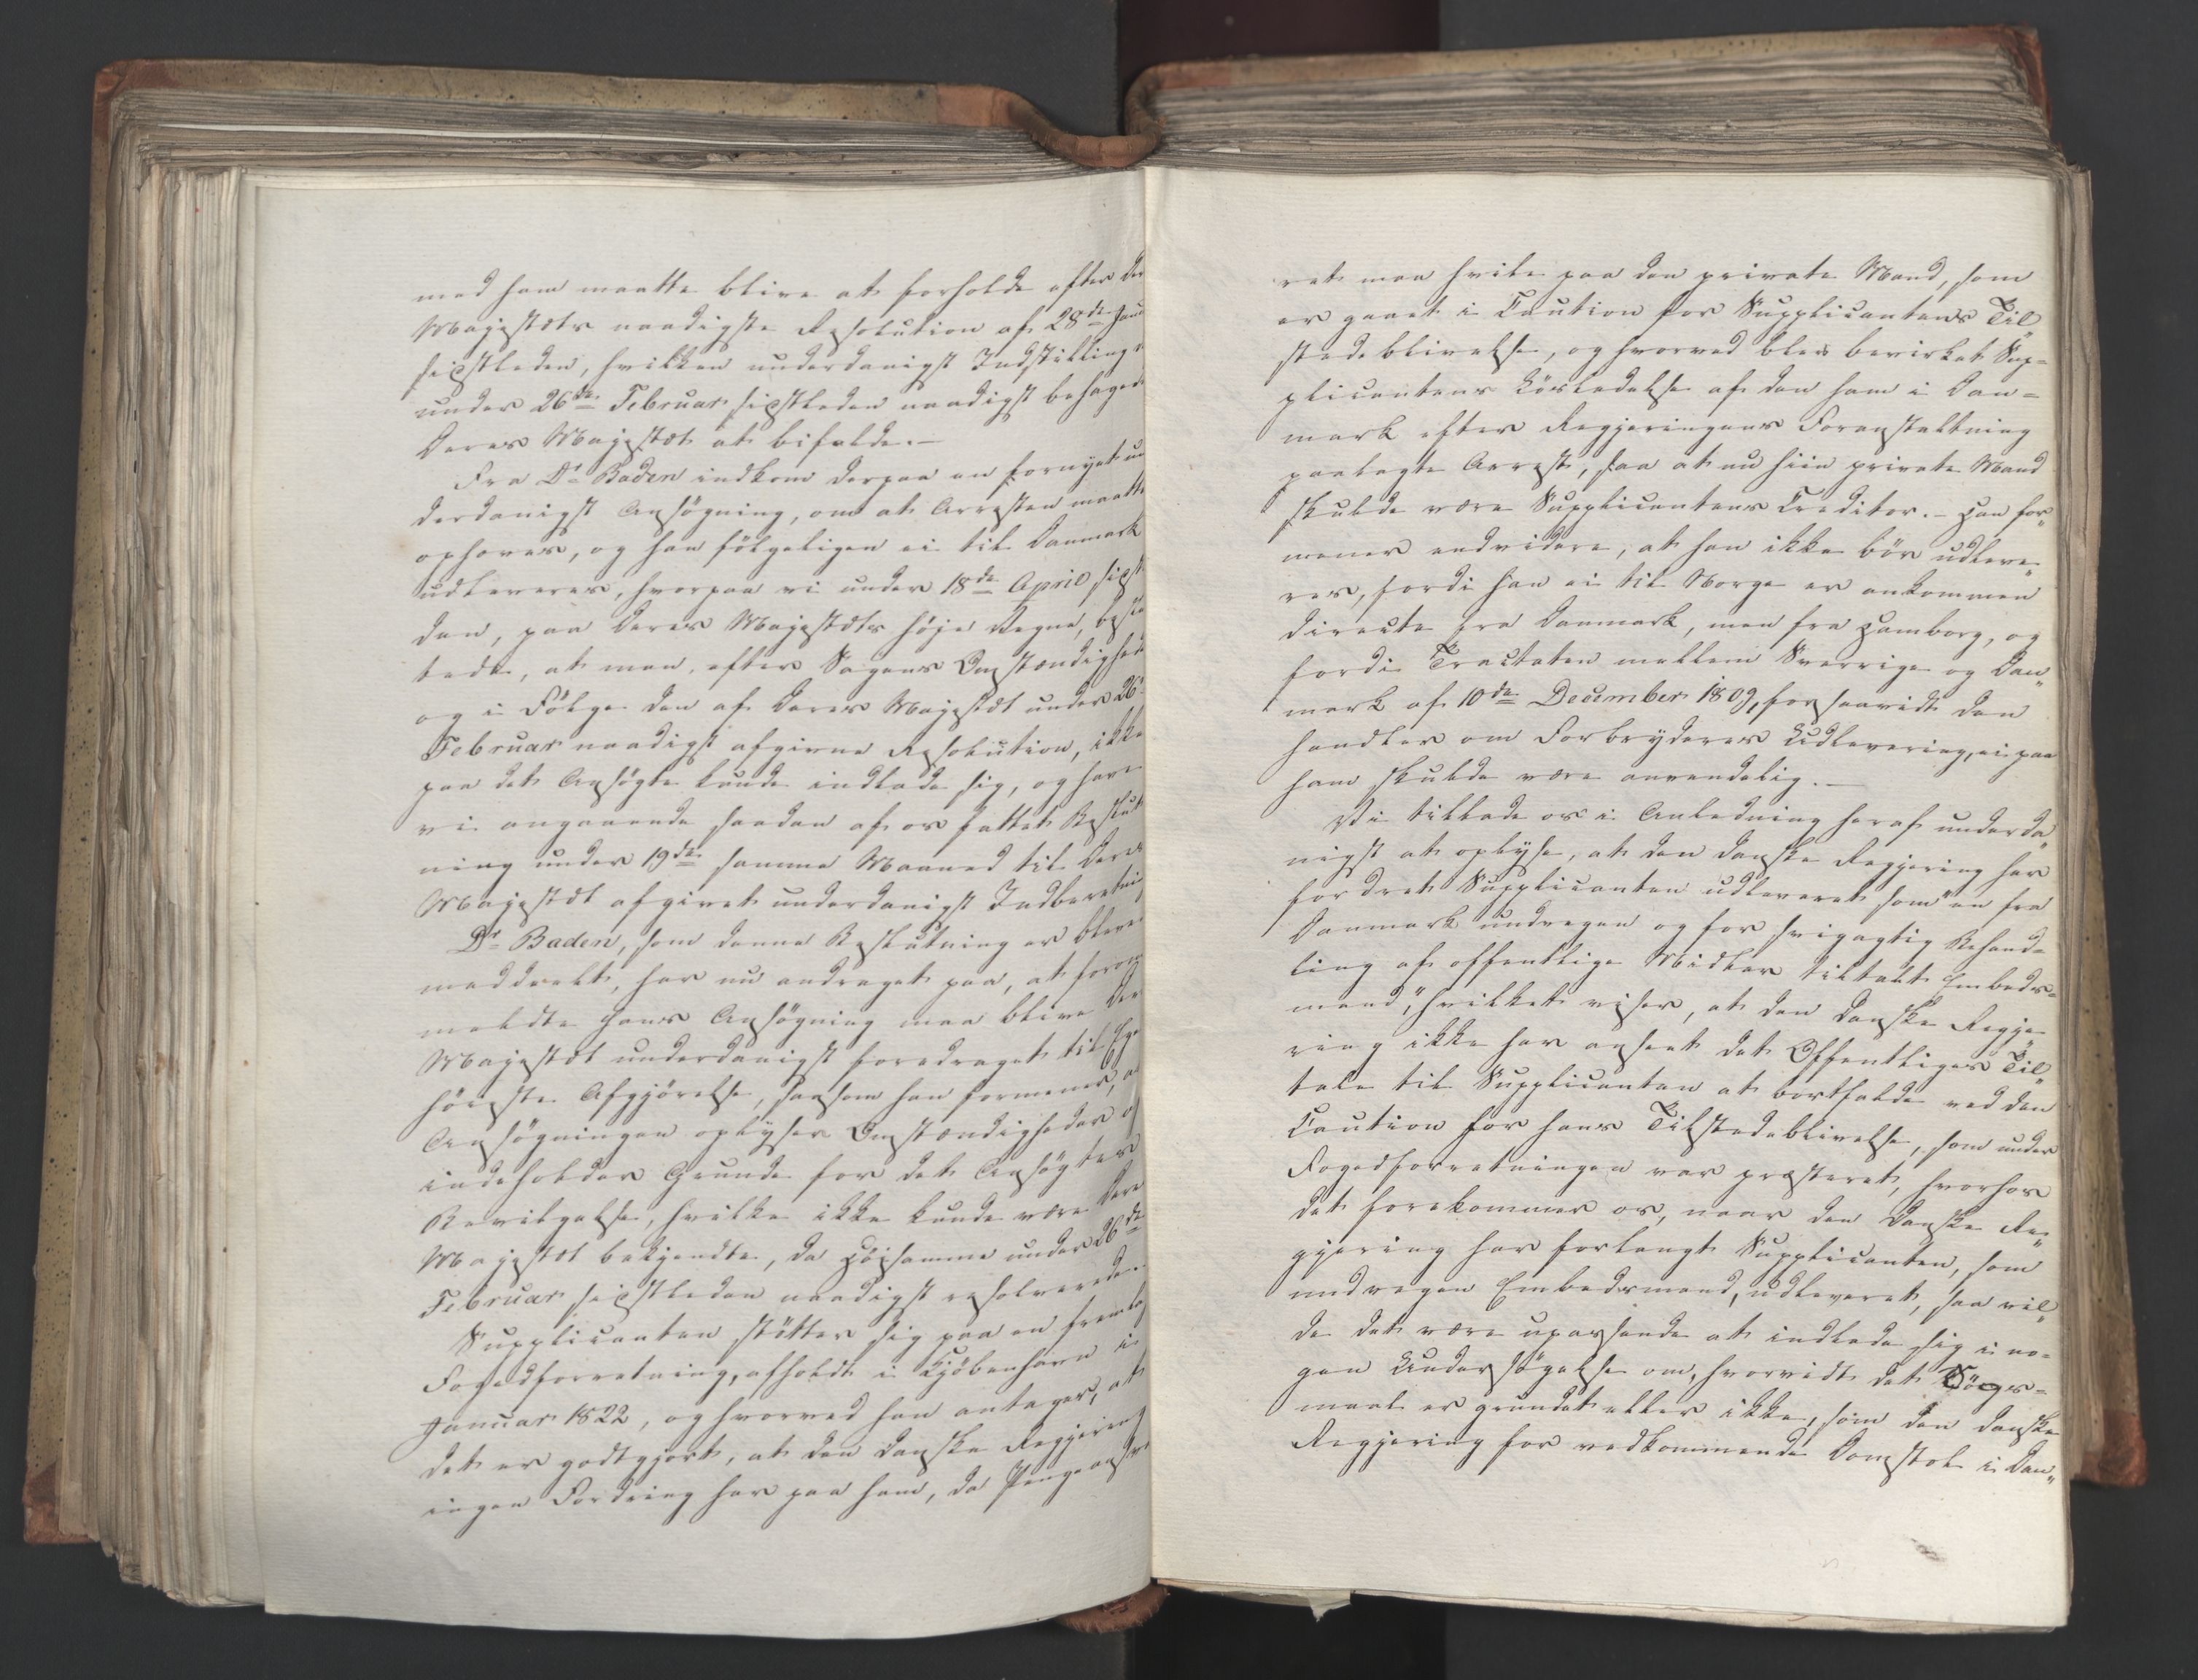 med ham maatte blive at forholde efter Der
Majestæts naadigste Resolution af 28de Janu
sidstleden, hvilken underdanigst Indstilling
under 26de Februar sidstleden naadigst behagede
Deres Majestæt at bifalde.—
Fra Dr Baden indkom derpaa en fornyet un
derdanigst Ansøgning, om at Arresten maatte
ophæves, og han følgeligen ei til Danmark
udleveres, hvorpaa vi under 18de April sidst
den, paa Deres Majestæts høje Vegne, beslu
tede, at man, efter Sagens Omstændighede
og i Følge den af Deres Majestæt under 26
Februar naadigst afgivne Resolution, ikke
paa det Ansøgte kunde indlade sig, og have
vi angaaende saadan af os fattet Beslut
ning under 19de samme Maaned til Deres
Majestæt afgivet underdanigst Indberetning
Dr Baden, som denne Beslutning er bleven
meddeelt, har nu andraget paa, at foran
meldte hans Ansøgning maa blive Der
Majestæt underdanigst foredraget til Ege
høieste Afgjørelse, saasom han formener, at
Ansøgningen oplyser Omstændigheder og
indeholder Grunde for det Ansøgtes
Bevilgelse, hvilke ikke kunde være Deres
Majestæt bekjendte, da Høisamme under 26de
Februar sidstleden naadigst resolverede.
Supplicanten støtter sig paa en fremlagt
Fogedforretning, afholdt i Kjøbenhavn i
Januar 1822, og hvorved han antager, at
det er godtgjort, at den danske Regjering
ingen Fordring har paa ham, da Pengeansva
ret maa hvile paa den private Mand, som
er gaaet i Caution for Supplicantens Til„
stedeblivelse, og hvorved blev bevirket Sup=
plicantens Løsladelse af den ham i Dan=
mark efter Regjeringens Foranstaltning
paalagte Arrest, saa at nu hiin private Mand
skulde være Supplicantens Creditor.— Han for„
mener endvidere, at han ikke bør udleve„
res, fordi han ei til Norge er ankommen
directe fra Danmark, men fra Hamborg, og
fordi Tractaten mellem Sverrige og Dan„
mark af 10de December 1809, forsaavidt den
handler om Forbryderes Udlevering, ei paa
ham skulde være anvendelig.—
Vi tillade os i Anledning heraf underda„
nigst at oplyse, at den danske Regjering har
fordret Supplicanten udleveret som "en fra
Danmark undvegen og for svigagtig Behand=
ling af offentlige Midler tiltalt Embeds=
mand", hvilket viser, at den danske Regje„
ring ikke har anseet det Offentliges Til„
tale til Supplicanten at bortfalde ved den
Caution for hans Tilstedeblivelse, som under
Fogedforretningen var præsteret, hvorhos
det forekommer os, naar den danske Re„
gjering har forlangt Supplicanten, som
undvegen Embedsmand, udleveret, saa vil„
de det være upassende at indlade sig i no=
gen Undersøgelse om, hvorvidt det Søgs=
maal er grundet eller ikke, som den danske
Regjering for vedkommende Domstol i Dan„